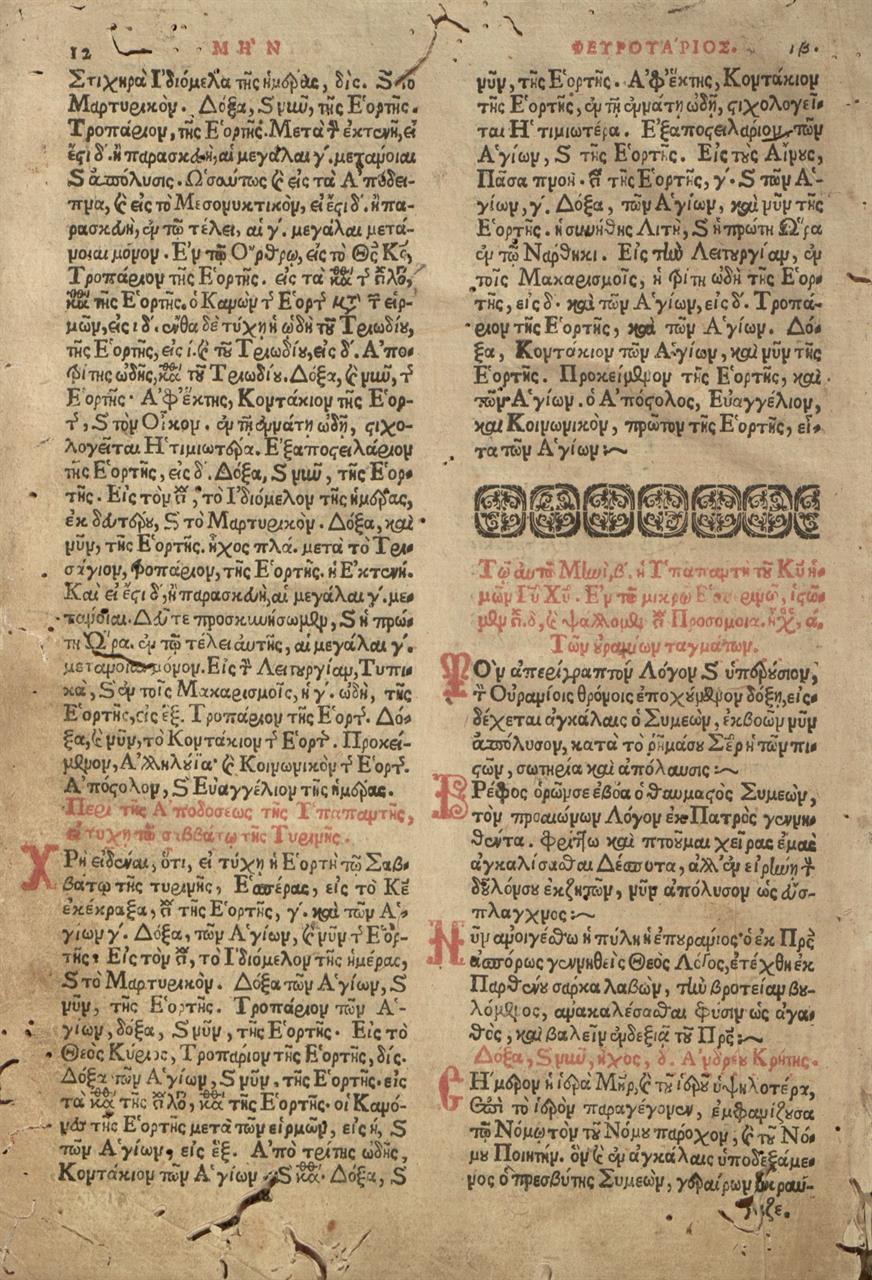 12 ΜΗ Ν
ΦΕΥΡΟΥΑΡΙΟΣ. ιβ.
Στιχηρὰ Ἰδιόμελα τῆς ἡμέρας, δίς. καὶ τὸ
Μαρτυρικόν. Δόξα, καὶ νιῦ, τῆς Ἑορτῆς.
Τροπάριον, τῆς Ἑορτῆς. Μετὰ τ ἐκτενῆ, εἰ
ἔςι δ. ἢ παρασκευὴ, αἱ μεγάλαι γ. μετάνοιαι
καὶ ἀπόλυσις. Ὡσαύτως καὶ εἰς τὰ Ἀπόδει-
πνα, καὶ εἰς τὸ Μεσονυκτικὸν, εἰ ἔςι δ. ἢ πα-
ρασκευὴ, ἐν τῷ τέλει, αἱ γ. μεγάλαι μετά-
νοιαι μόνον. Ἐν τῷ Ὄρθρῳ, εἰς τὸ Θς Κς,
Τροπάριον τῆς Ἑορτῆς. εἰς τὰ καθ τ πλο,
καθ τῆς Ἑορτῆς. ὁ Κανὼν τ Ἑορτ μτ τ εἱρ-
μῶν, εἰς ιδ. ἔνθα δὲ τύχῃ ἡ ὠδὴ τοῦ Τριωδίου,
τῆς Ἑορτῆς, εἰς ι. καὶ τοῦ Τριωδίου, εἰς δ. Ἀπο
τρίτης ὠδῆς, καθ τοῦ Τριωδίου. Δόξα, καὶ νιῦ, τ
Ἑορτῆς. Ἀφ' ἕκτης, Κοντάκιον τῆς Ἑορ-
τ, καὶ τὸν Οἶκον. ἐν τῇ ἐννάτῃ ὠδῇ, ςιχο-
λογεῖται Ἡ τιμιωτέρα. Ἐξαποςειλάριον
τῆς Ἑορτῆς, εἰς δ. Δόξα, καὶ νιῦ, τῆς Ἑορ-
τῆς. Εἰς τὸν ςί, τὸ Ἰδιόμελον τῆς ἡμέρας,
ἐκ δευτέρου, καὶ τὸ Μαρτυρικόν. Δόξα, καὶ
νῦν, τῆς Ἑορτῆς. ἦχος πλά. μετὰ τὸ Τρι-
σάγιον, τροπάριον, τῆς Ἑορτῆς. ἡ Ἐκτενή.
Καὶ εἰ ἔςι δ, ἢ παρασκευὴ, αἱ μεγάλαι γ. με-
τάνοιαι. Δεῦτε προσκυνήσωμεν, καὶ ἡ πρώ-
τη Ὥρα. ἐν τῷ τέλει αὐτῆς, αἱ μεγάλαι γ.
μετάνοιαι μόνον. Εἰς τ Λειτουργίαν, Τυπι-
κὰ, καὶ ἐν τοῖς Μακαρισμοῖς, ἡ γ. ὠδὴ, τῆς
Ἑορτῆς, εἰς ἕξ. Τροπάριον τῆς Ἑορτ. Δό-
ξα, καὶ νῦν, τὸ Κοντάκιον τ Ἑορτ. Προκεί-
μενον, Ἀλληλούϊα. καὶ Κοινωνικὸν τ Ἑορτ.
Ἀπόςολον, καὶ Εὐαγγέλιον τῆς ἡμέρας.
Περὶ τῆς Ἀποδόσεως τῆς Ὑπαπαντῆς,
εἰ τύχῃ τῷ σαββάτῳ τῆς Τυρινῆς.
Χρὴ εἰδέναι, ὅτι, εἰ τύχῃ ἡ Ἑορτὴ τῷ Σαβ-
βάτῳ τῆς τυρινῆς, Ἑσπέρας, εἰς τὸ Κε
ἐκέκραξα, ςί τῆς Ἑορτῆς, γ. καὶ τῶν Ἁ-
γίων γ. Δόξα, τῶν Ἁγίων, καὶ νῦν τ Ἑορ-
τῆς. Εἰς τὸν ςί, τὸ Ἰδιόμελον τῆς ἡμέρας,
καὶ τὸ Μαρτυρικόν. Δόξα τῶν Ἁγίων, καὶ
νῦν, τῆς Ἑορτῆς. Τροπάριον τῶν Ἁ-
γίων, δόξα, καὶ νῦν, τῆς Ἑορτῆς. Εἰς τὸ
Θεὸς Κύριος, Τροπάριον τῆς Ἑορτῆς, δίς.
Δόξα τῶν Ἁγίων, καὶ νῦν, τῆς Ἑορτῆς. εἰς
τὰ καθ τῆς ςιλο, καθ τῆς Ἑορτῆς. οἱ Κανό-
νες τῆς Ἑορτῆς μετὰ τῶν εἱρμῶν, εἰς η, καὶ
τῶν Ἁγίων, εἰς ἕξ. Ἀπὸ τρίτης ὠδῆς,
Κοντάκιον τῶν Ἁγίων καὶ καθ. Δόξα, καὶ
νῦν, τῆς Ἑορτῆς. Ἀφ' ἕκτης, Κοντάκιον
τῆς Ἑορτῆς, ἐν τῇ ἐννάτῃ ὠδῇ, ςιχολογεῖ-
ται Ἡ τιμιωτέρα. Ἐξαποςειλάριον τῶν
Ἁγίων, καὶ τῆς Ἑορτῆς. Εἰς τοὺς Αἴνους,
Πᾶσα πνοή. ςί τῆς Ἑορτῆς, γ. καὶ τῶν Ἁ-
γίων, γ. Δόξα, τῶν Ἁγίων, καὶ νῦν τῆς
Ἑορτῆς. ἡ συνήθης Λιτὴ, καὶ ἡ πρώτη Ὥρα
ἐν τῷ Νάρθηκι. Εἰς τὴν Λειτουργίαν, ἐν
τοῖς Μακαρισμοῖς, ἡ τρίτη ὠδὴ τῆς Ἑορ-
τῆς, εἰς δ. καὶ τῶν Ἁγίων, εἰς δ. Τροπά-
ριον τῆς Ἑορτῆς, καὶ τῶν Ἁγίων. Δό-
ξα, Κοντάκιον τῶν Ἁγίων, καὶ νῦν τῆς
Ἑορτῆς. Προκείμενον τῆς Ἑορτῆς, καὶ
τῶν Ἁγίων. ὁ Ἀπόςολος, Εὐαγγέλιον,
καὶ Κοινωνικὸν, πρῶτον τῆς Ἑορτῆς, εἶ-
τα τῶν Ἁγίων:~
Τῷ αὐτῷ Μηνὶ, β. ἡ Ὑπαπαντὴ τοῦ Κυ ἡ-
μῶν Ιυ Χυ. Ἐν τῷ μικρῷ Ἑσπερινῷ, ἱςῶ-
μεν ςί. δ, καὶ ψάλλομεν ςί Προσόμοια. ἦχ, ά.
Τῶν οὐρανίων ταγμάτων.
Τὸν ἀπερίγραπτον Λόγον καὶ ὑπερούσιον,
τ Οὐρανίοις θρόνοις ἐποχούμενον δόξῃ, εἰς-
δέχεται ἀγκάλαις ὁ Συμεὼν, ἐκβοῶν νῦν
ἀπόλυσον, κατὰ τὸ ῥῆμά σου Σερ ἡ τῶν πι-
ςῶν, σωτηρία καὶ ἀπόλαυσις:~
Βρέφος ὁρῶν σε ἐβόα ὁ θαυμαςὸς Συμεὼν,
τὸν προαιώνιον Λόγον ἐκ Πατρὸς γεννη-
θέντα. φρίττω καὶ πτοοῦμαι χεῖρας ἐμὰς
ἀγκαλίσασθαι Δέσποτα, ἀλλ' ἐν εἰρήνῃ τ
δοῦλόν σου ἐκζητῶν, νῦν ἀπόλυσον ὡς εὔσ-
πλαγχνος:~
Νῦν ἀνοιγέσθω ἡ πύλη ἡ ἐπουράνιος. ὁ ἐκ Πρς
ἀσπόρως γεννηθεὶς Θεὸς Λόγος, ἐτέχθη ἐκ
Παρθένου σάρκα λαβὼν, τὴν βροτείαν βου-
λόμενος, ἀνακαλέσασθαι φύσιν ὡς ἀγα-
θὸς, καὶ βαλεῖν ἐν δεξιᾷ τοῦ Πρς:~
Δόξα, καὶ νιῦ, ἦχος, δ. Ἀνδρέου Κρήτης.
Σήμερον ἡ ἱερὰ Μηρ, καὶ τοῦ ἱεροῦ ὑψηλοτέρα,
ἐπὶ τὸ ἱερὸν παραγέγονεν, ἐμφανίζουσα
τῷ Νόμῳ τὸν τοῦ Νόμου πάροχον, καὶ τοῦ Νό-
μου Ποιητήν. ὃν καὶ ἐν ἀγκάλαις ὑποδεξάμε-
νος ὁ πρεσβύτης Συμεὼν, γεραίρων ἐκραύ-
γαζε.